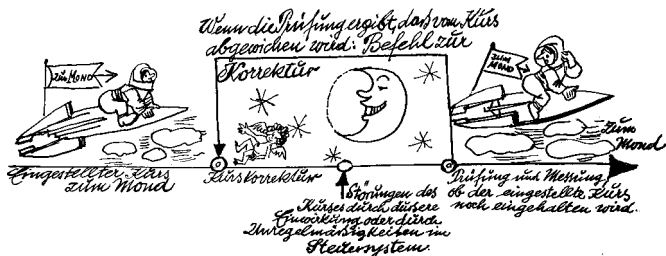 Wenn die Prüfung ergibt, daß vom Kurs
abgewichen wird: Befehl zur
Korrektur
ZUM MOND
ZUM
MOND
Zum
Mond
Eingestellter Kurs
zum Mond
Kurskorrektur
Störungen des
Kurses durch äußere
Einwirkung oder durch
Unregelmäßigkeiten im
Steuersystem.
Prüfung und Messung,
ob der eingestellte Kurs
noch eingehalten wird.